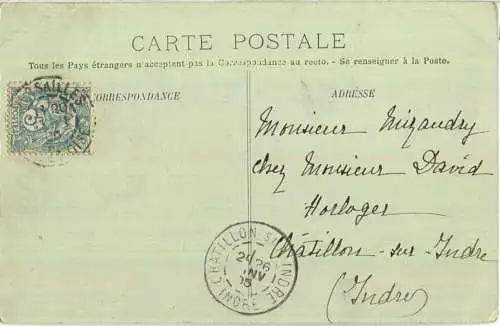 CARTE POSTALE
Tous les Pays étrangers n'acceptent pas la Correspondance au recto. - Se renseigner à la Poste.
CORRESPONDANCE
ADRESSE
Monsieur Mizaudry
chez Monsieur David
Horloger
Châtillon-sur-Indre
(Indre)
CHATILLON-S-INDRE
26
INDRE